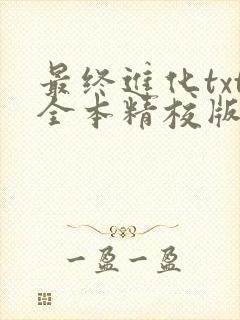 最终进化txt
全本精校版
一盈一盈